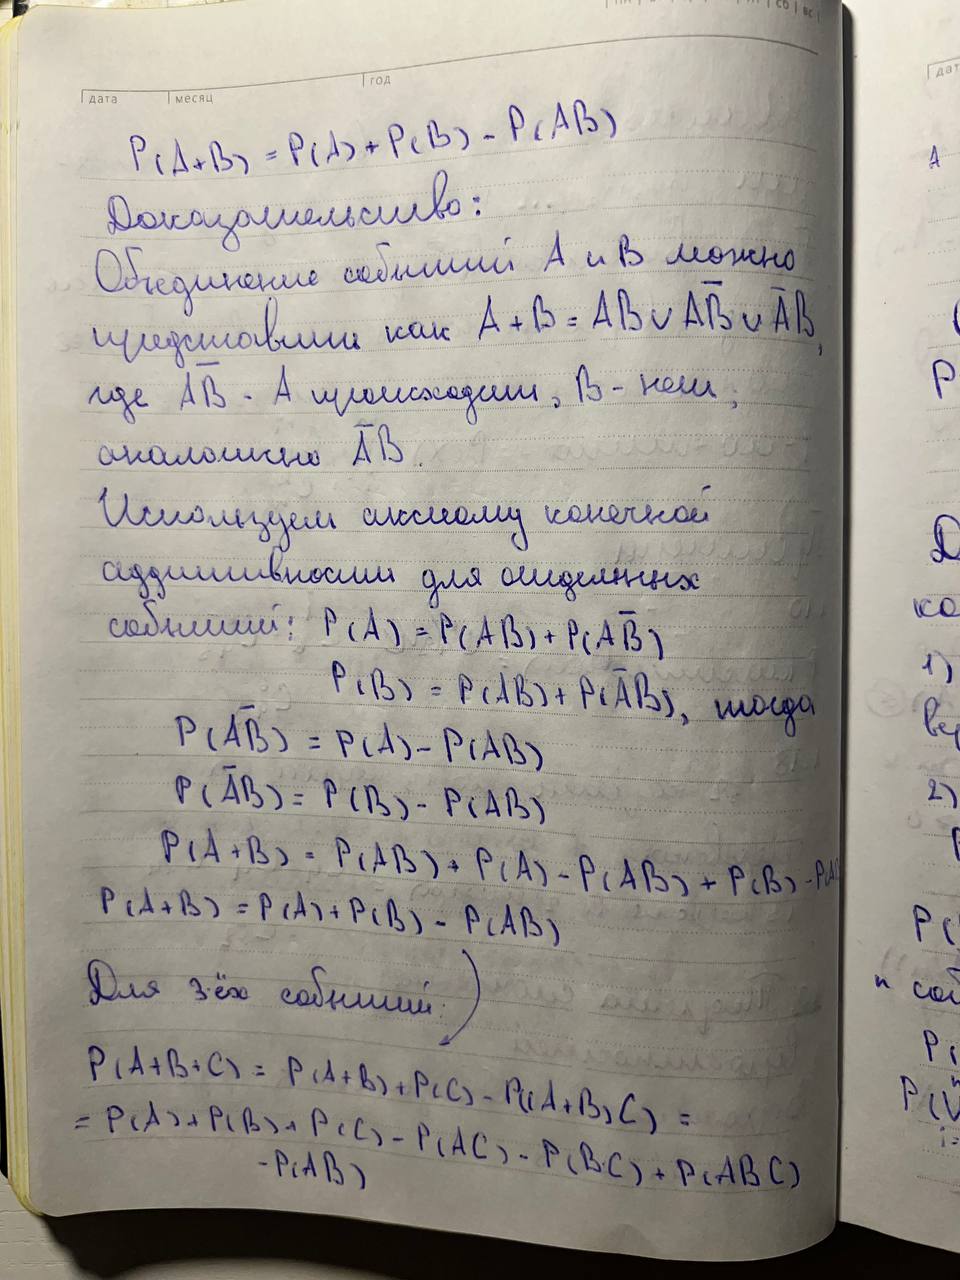 сб вс
дата месяц год
P(A+B) = P(A) + P(B) - P(AB)
Доказательство:
Объединение событий A и B можно
представить как A+B = AB ∪ AB̅ ∪ A̅B,
где AB̅ - A происходит, B - нет,
аналогично A̅B.
Используем аксиому конечной
аддитивности для
событий: P(A) = P(AB) + P(AB̅)
P(B) = P(AB) + P(A̅B), тогда
P(AB̅) = P(A) - P(AB)
P(A̅B) = P(B) - P(AB)
P(A+B) = P(AB) + P(A) - P(AB) + P(B) - P(AB
P(A+B) = P(A) + P(B) - P(AB)
Для 3-ёх событий:
P(A+B+C) = P(A+B) + P(C) - P((A+B)C) =
= P(A) + P(B) + P(C) - P(AC) - P(BC) + P(ABC)
- P(AB)
дат
A
P
Д
ко
1)
ве
2)
P
P(
n соб
P(
P(
i=